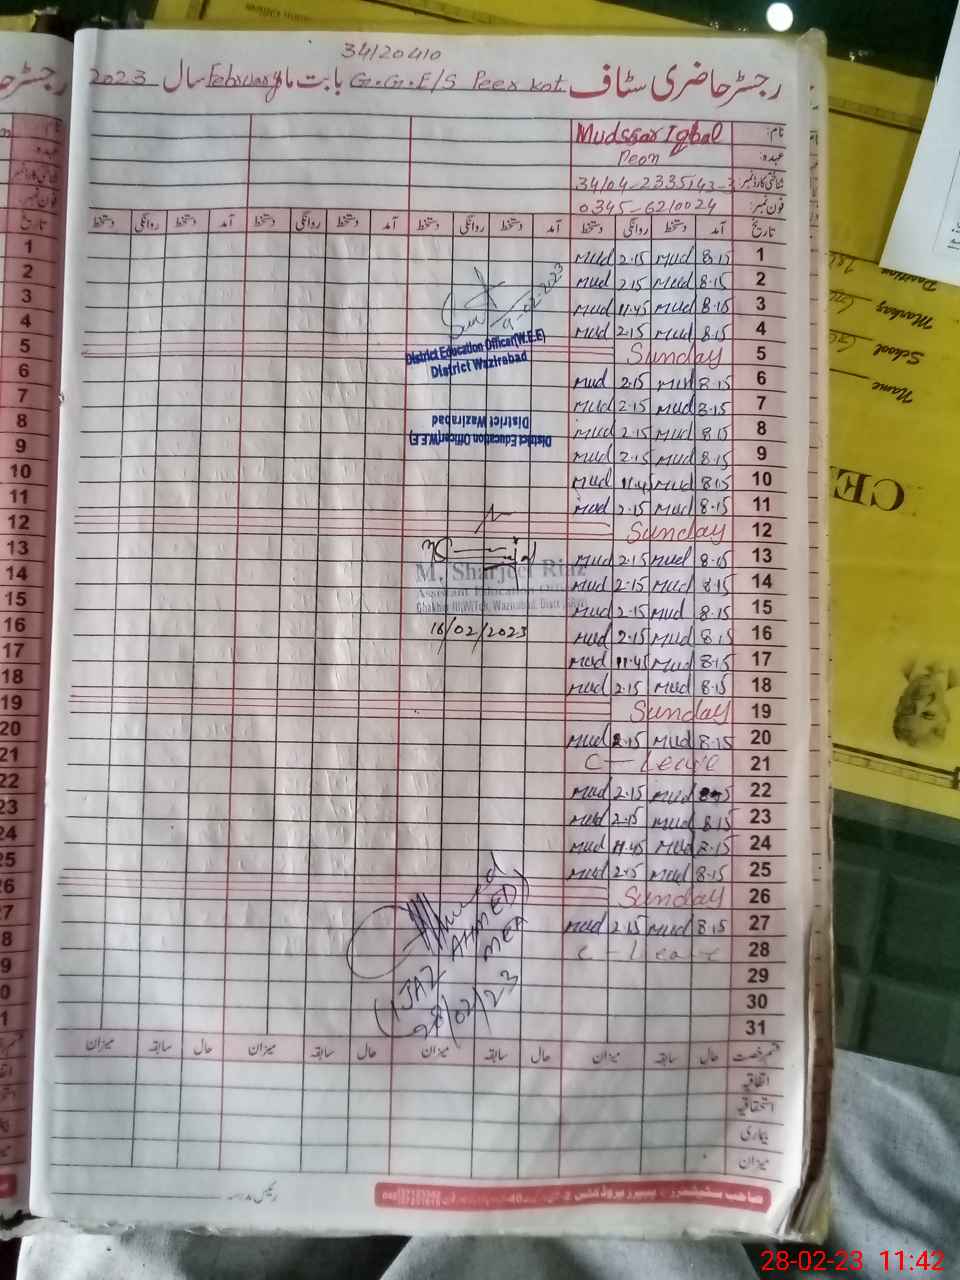 34120410
رجسٹر حاضری سٹاف G.G.E/S Peer kot بابت ماہ February سال 2023
نام: Mudssar Iqbal
عہدہ: Peon
شناختی کارڈ نمبر: 34104-2335143-3
فون نمبر: 0345-6210024
تاریخ آمد دستخط روانگی دستخط آمد دستخط روانگی دستخط آمد دستخط روانگی دستخط
1 8.15 Mud 2.15 Mud
2 8.15 Mud 2.15 Mud
3 8.15 Mud 11.45 Mud
4 8.15 Mud 2.15 Mud
5 Sunday
6 8.15 Mud 2.15 Mud
7 8.15 Mud 2.15 Mud
8 8.15 Mud 2.15 Mud
9 8.15 Mud 2.15 Mud
10 8.15 Mud 11.45 Mud
11 8.15 Mud 2.15 Mud
12 Sunday
13 8.15 Mud 2.15 Mud
14 8.15 Mud 2.15 Mud
15 8.15 Mud 2.15 Mud
16 8.15 Mud 2.15 Mud
17 8.15 Mud 11.45 Mud
18 8.15 Mud 2.15 Mud
19 Sunday
20 8.15 Mud 2.15 Mud
21 C - Leave
22 Mud 2.15 Mud
23 8.15 Mud 2.15 Mud
24 8.15 Mud 11.45 Mud
25 8.15 Mud 2.15 Mud
26 Sunday
27 8.15 Mud 2.15 Mud
28 C - Leave
29
30
31
9-02-2023
District Education Officer(W.E.E)
District Wazirabad
District Education Officer(W.E.E)
District Wazirabad
M. Sharjeel Riaz
Assistant Education
16/02/2023
Ahmed
(IJAZ AHMED)
MEA
28/02/23
قسم رخصت حال سابقہ میزان حال سابقہ میزان حال سابقہ میزان
اتفاقیہ
استحقاقیہ
بیماری
میزان
رئیس مدرسہ
Name
School
Markaz
CE
28-02-23 11:42